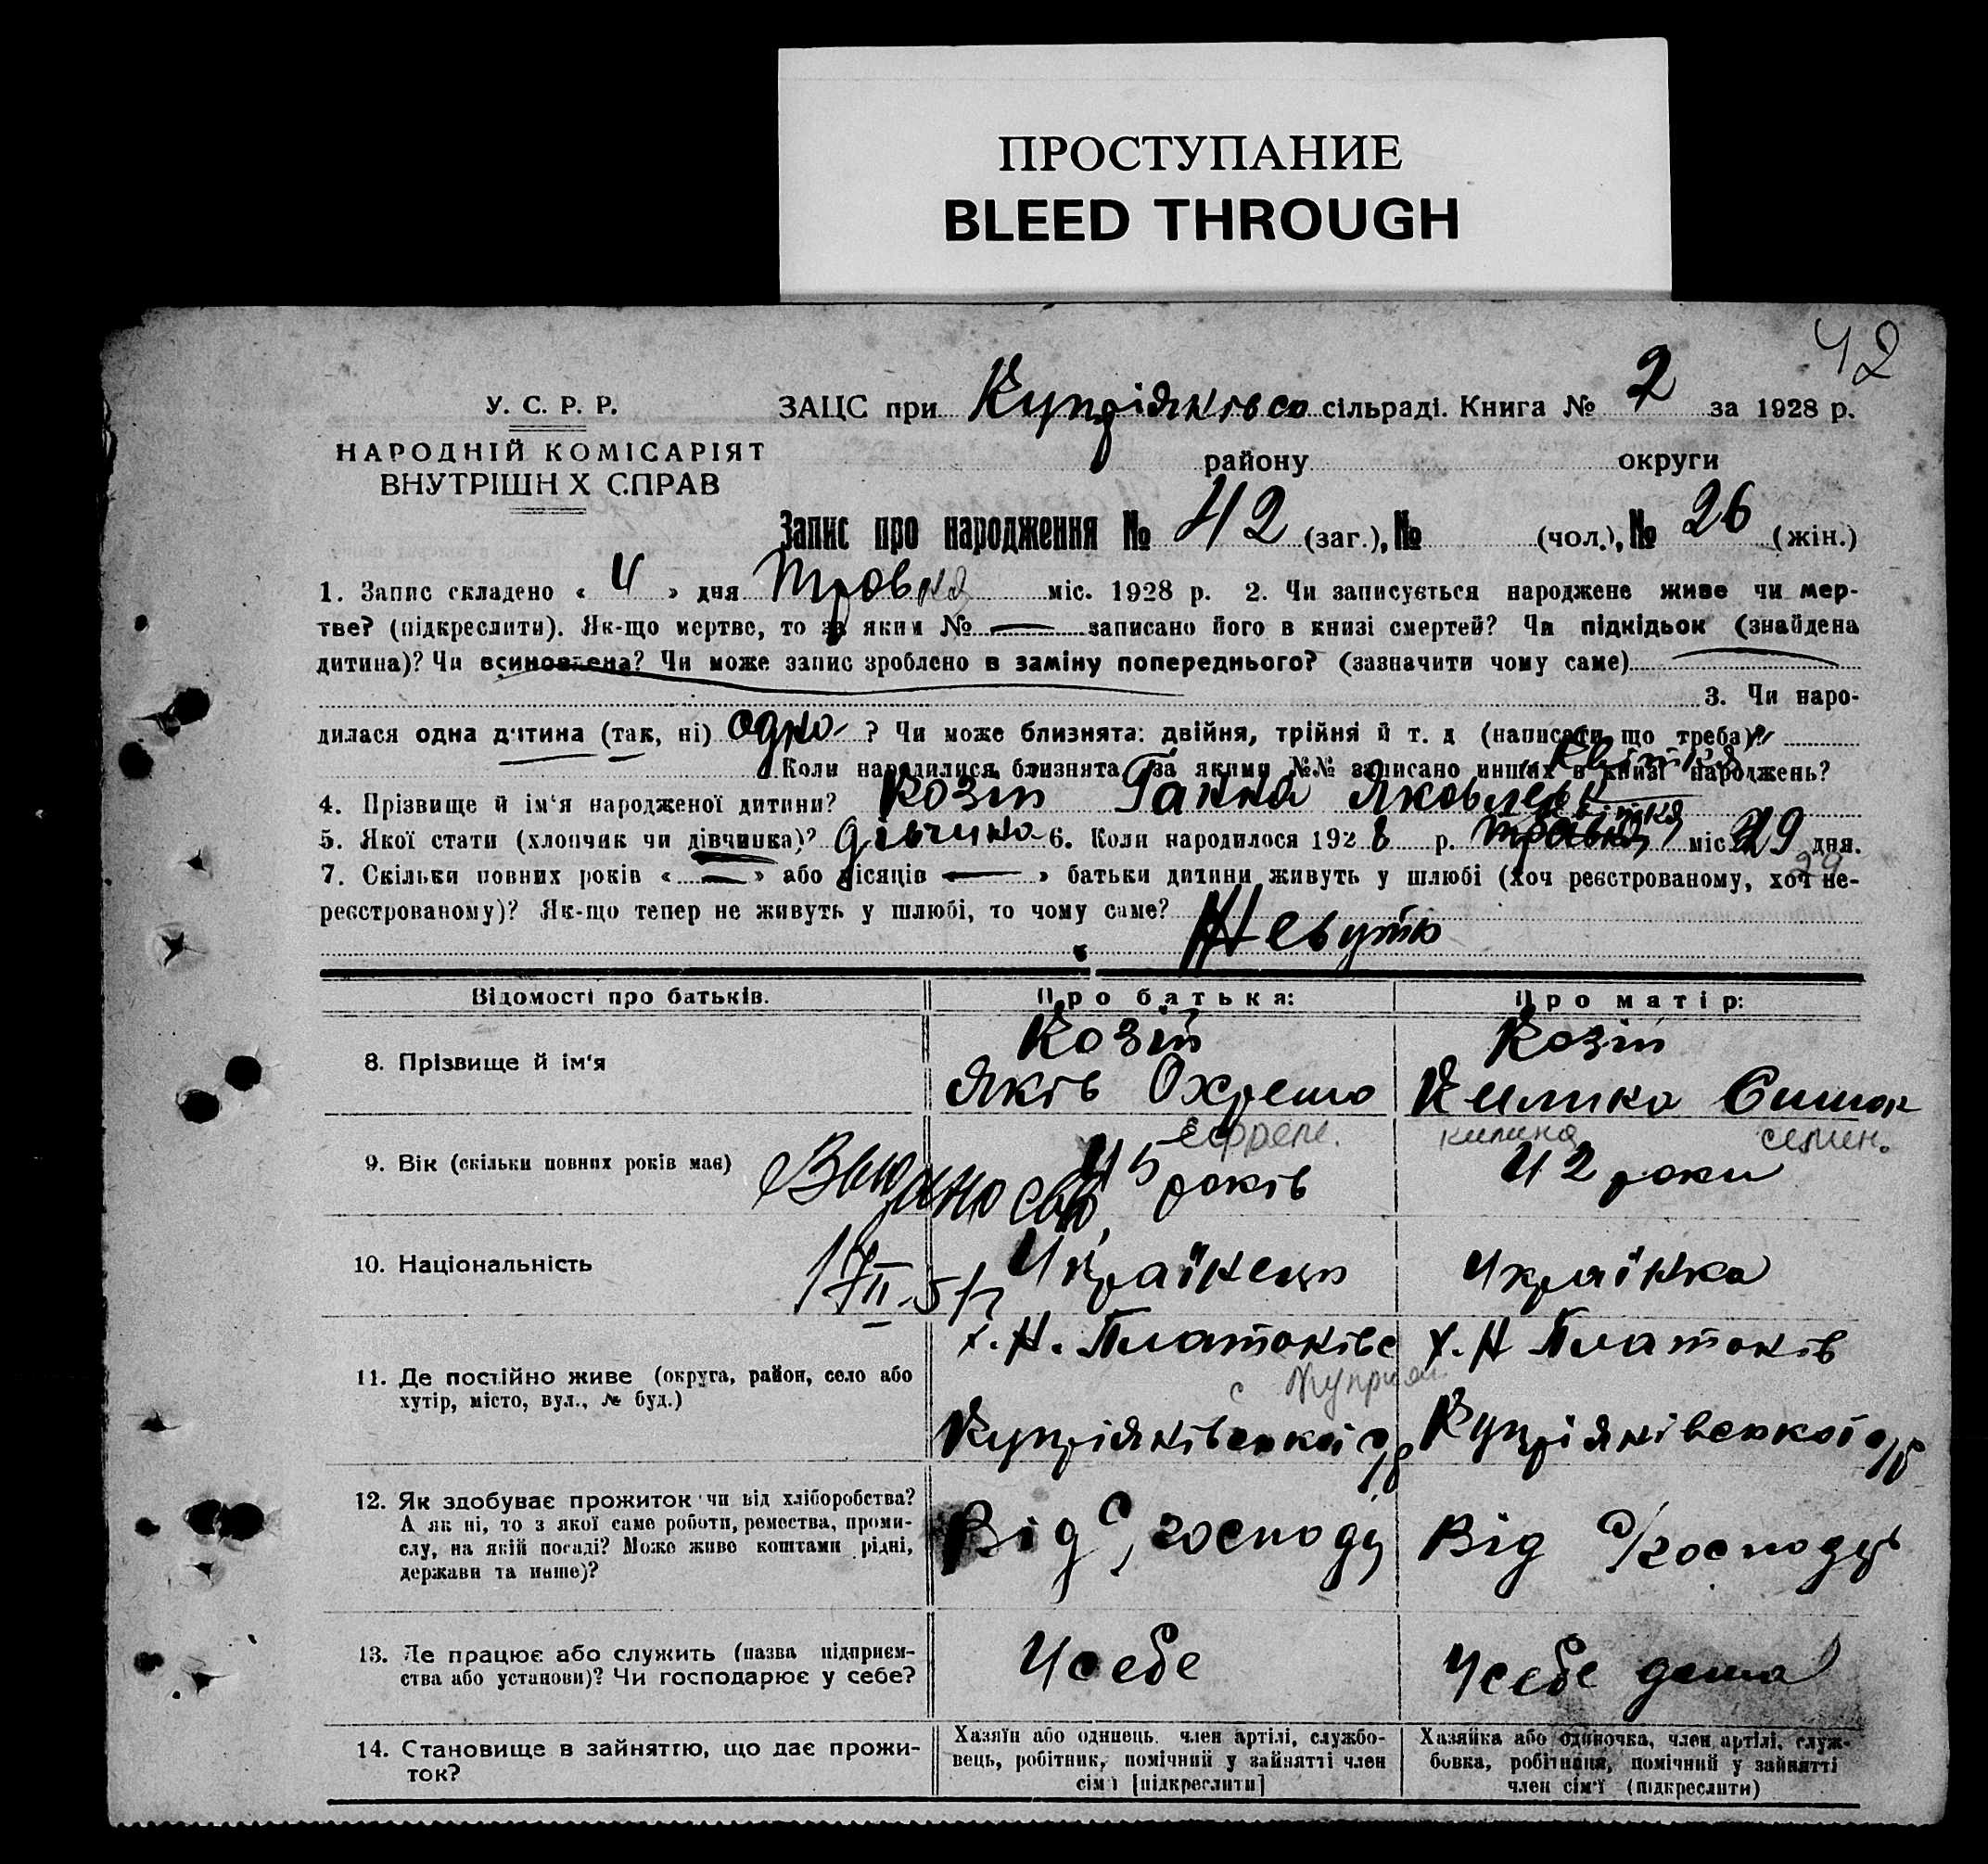 ПРОСТУПАНИЕ
BLEED THROUGH
42
У. С. Р. Р.
НАРОДНІЙ КОМІСАРІЯТ
ВНУТРІШН Х СПРАВ
ЗАЦС при Купріянівсь сільраді. Книга № 2 за 1928 р.
району округи
Запис про народження № 42 (заг.), № (чол.), № 26 (жін.)
1. Запис складено « 4 » дня Травня міс. 1928 р. 2. Чи записується народжене живе чи мер-
тве? (підкреслити). Як-що мертве, то за яким № — записано його в книзі смертей? Чи підкідьок (знайдена
дитина)? Чи всиновлена? Чи може запис зроблено в заміну попереднього? (зазначити чому саме)
3. Чи наро-
дилася одна дитина (так, ні) одна ? Чи може близнята: двійня, трійня й т. д (написати що треба)?
Коли народилися близнята, за якими №№ записано инших в книзі народжень?
квітня
4. Прізвище й ім'я народженої дитини? Козій Ганна Яковлев
5. Якої стати (хлопчик чи дівчинка)? дівчина 6. Коли народилося 1928 р. травня міс. 29 дня.
29
7. Скільки повних років « — » або місяців — » батьки дитини живуть у шлюбі (хоч реєстрованому, хоч не-
реєстрованому)? Як-що тепер не живуть у шлюбі, то чому саме?
Відомості про батьків. Про батька: Про матір:
8. Прізвище й ім'я
Козій Козій
Яків Охремо Килина
Єфрем. килина семен.
9. Вік (скільки повних років має) 45 років 42 роки
Выдано св.
10. Національність Українець Українка
11. Де постійно живе (округа, район, село або
хутір, місто, вул., № буд.)
х. Н. Платонівс х. Н Платонів
с Куприян
Купріянівської с/р Купріянівської с/р
12. Як здобуває прожиток чи від хліборобства?
А як ні, то з якої саме роботи, ремества, проми-
слу, на якій посаді? Може живе коштами рідні,
держави та инше)?
Від с/господ Від с/господ
13. Де працює або служить (назва підприєм-
ства або установи)? Чи господарює у себе?
У себе У себе дома
14. Становище в зайняттю, що дає прожи-
ток?
Хазяїн або одинець, член артілі, службо-
вець, робітник, помічний у зайнятті член
сім'ї [підкреслити]
Хазяйка або одиночка, член артілі, служ-
бовка, робітниця, помічний у зайнятті
член сім'ї (підкреслити)